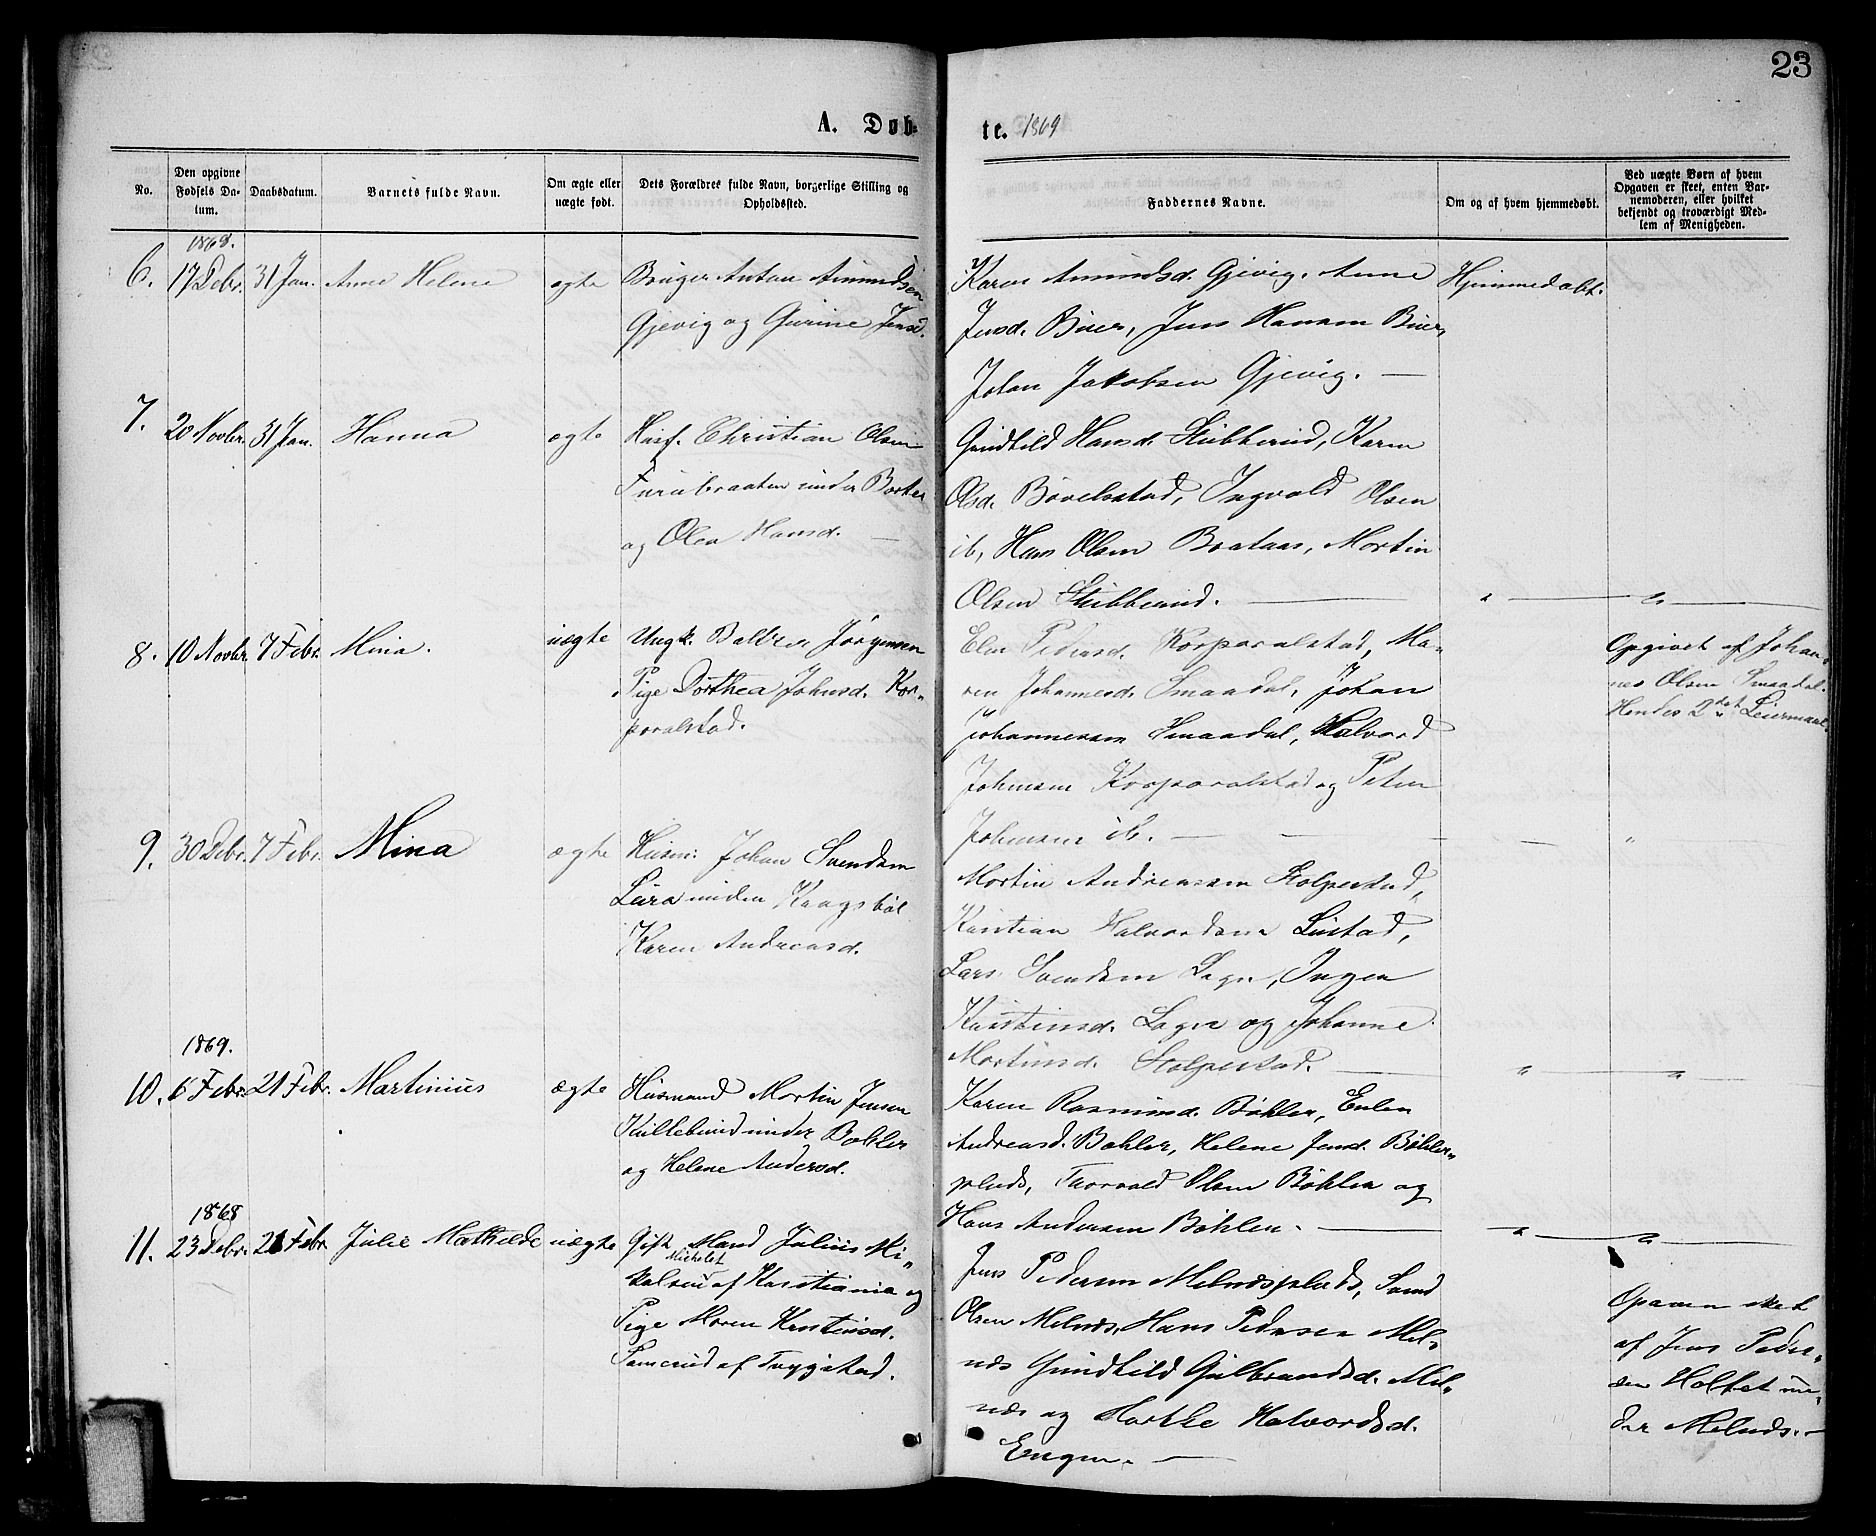 23
A. Døb-
te. 1869
No.
Den opgivne Fødsels Da-tum.
Daabsdatum.
Barnets fulde Navn.
Om ægte eller uægte født.
Dets Forældres fulde Navn, borgerlige Stilling og Opholdssted.
Faddernes Navne.
Om og af hvem hjemmedøbt.
Ved uægte Børn af hvem Opgaven er skeet, enten Bar-nemoderen, eller hvilket bekjendt og troværdigt Med-lem af Menigheden.
1868.
6. 17 Debr. 31 Jan. Anne Helene ægte
Bruger Anton Amundsen
Gjevig og Gurine Jensd.
Karen Amundsd. Gjevig, Anne
Jensd. Buer, Jens Hansen Buer,
Johan Jakobsen Gjevig. —
Hjemmedøbt.
7. 20 Novbr. 31 Jan. Hanna ægte
Husf. Christian Olsen
Furubraaten under
og Olea Hansd. —
Gundhild Hansd. Stubberud, Karen
Olsd. Bøvelstad, Ingvald Olsen
ib, Hans Olsen Brataas, Martin
Olsen Stubberud. —
" — " —
8. 10 Novbr. 7 Febr. Mina. uægte
Ungk. Jørgensen
Pige Dorthea Johnsd. Kor-
poralstad.
Elen Pedersd. Korporalstad, Ma-
ren Johannesd. Smaadal, Johan
Johannesen Smaadal, Halvord
Johnsen Korporalstad og Peter
Johnsen ib. — —
Opgivet af Johan-
nes Olsen Smaadal.
Hendes 2det Leiermaal.
— "
9. 30 Debr. 7 Febr. Mina ægte
Husm. Johan Svendsen
Leira under Kragsbøl
Karen Andreasd.
Martin Andreassen Stolpestad,
Kristian Halvordsen Lustad,
Lars Svendsen, Inger
Kristensd. og Johanne
Martinsd. Stolpestad. —
" — "
1869.
10. 6 Febr. 21 Febr. Martinius ægte
Husmand Martin Jensen
Kullebund under Bøhler
og Helene Andersd.
Karen Rasmusd. Bøhler, Eulen
Andreasd. Bøhler, Helene Jensd. Bøhler-
plads, Thorvald Olsen Bøhler og
Hans Andersen Bøhler. —
" — " —
1868
11. 23 Debr. 21 Febr. Julie Mathilde uægte
Gift Mand Julius Mi-
Michelet
kalsen af Kristiania og
Pige Maren Kristiansd.
af Trygstad.
Jens Pedersen Melnæsplads, Svend
Olsen Melnæs, Hans Pedersen Mel-
næs Gundhild Gulbrandsd. Mel-
næs og Halvordsd.
Engen. —
Opgaven skeet
af Jens Peder-
sen Holtet un-
der Melnæs. —